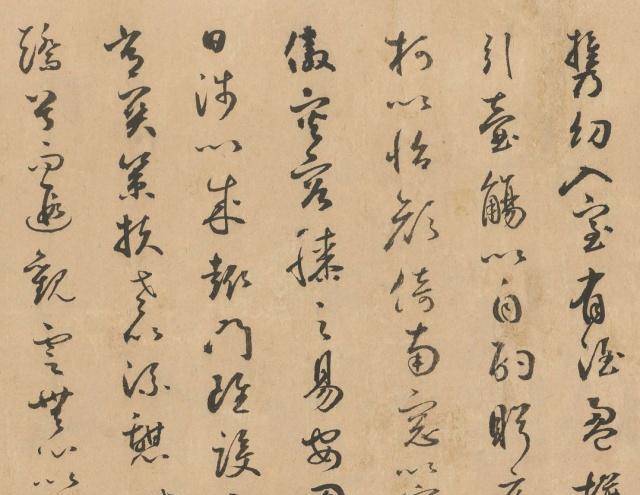 携幼入室有酒盈樽
引壺觴以自酌眄
柯以怡顏倚南窓以
傲審容膝之易安
日涉以成趣門雖設
常關策扶老以流憩
矯首而遐觀雲無心以